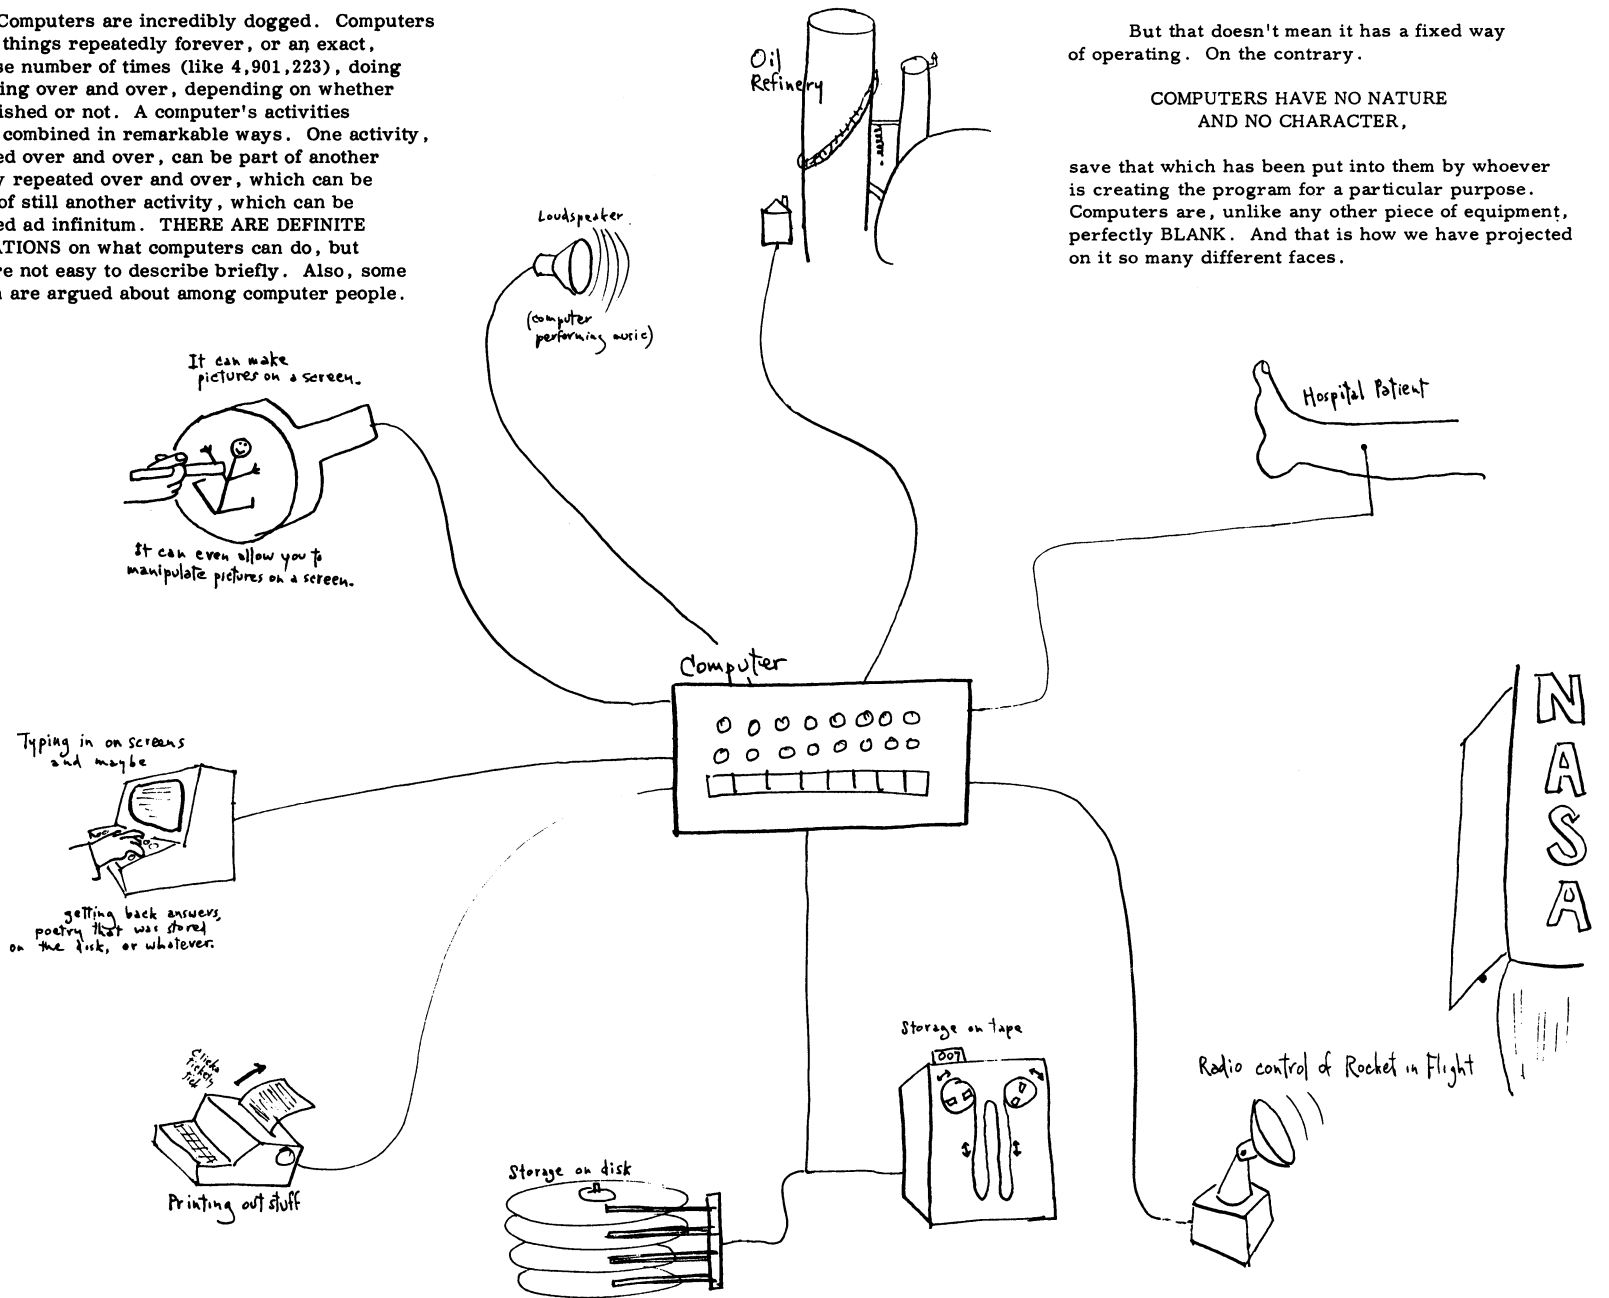 Computers are incredibly dogged. Computers
things repeatedly forever, or an exact,
se number of times (like 4,901,223), doing
ing over and over, depending on whether
ished or not. A computer's activities
combined in remarkable ways. One activity,
ed over and over, can be part of another
y repeated over and over, which can be
of still another activity, which can be
ed ad infinitum. THERE ARE DEFINITE
ATIONS on what computers can do, but
re not easy to describe briefly. Also, some
are argued about among computer people.
Oil
Refinery
But that doesn't mean it has a fixed way
of operating. On the contrary.
COMPUTERS HAVE NO NATURE
AND NO CHARACTER,
save that which has been put into them by whoever
is creating the program for a particular purpose.
Computers are, unlike any other piece of equipment,
perfectly BLANK. And that is how we have projected
on it so many different faces.
Loudspeaker.
(computer
performing music)
It can make
pictures on a screen.
It can even allow you to
manipulate pictures on a screen.
Hospital Patient
Computer
Typing in on screens
and maybe
getting back answers,
poetry that was stored
on the disk, or whatever.
NASA
Clicka
tickety
tick
Printing out stuff
Storage on disk
Storage on tape
007
Radio control of Rocket in Flight